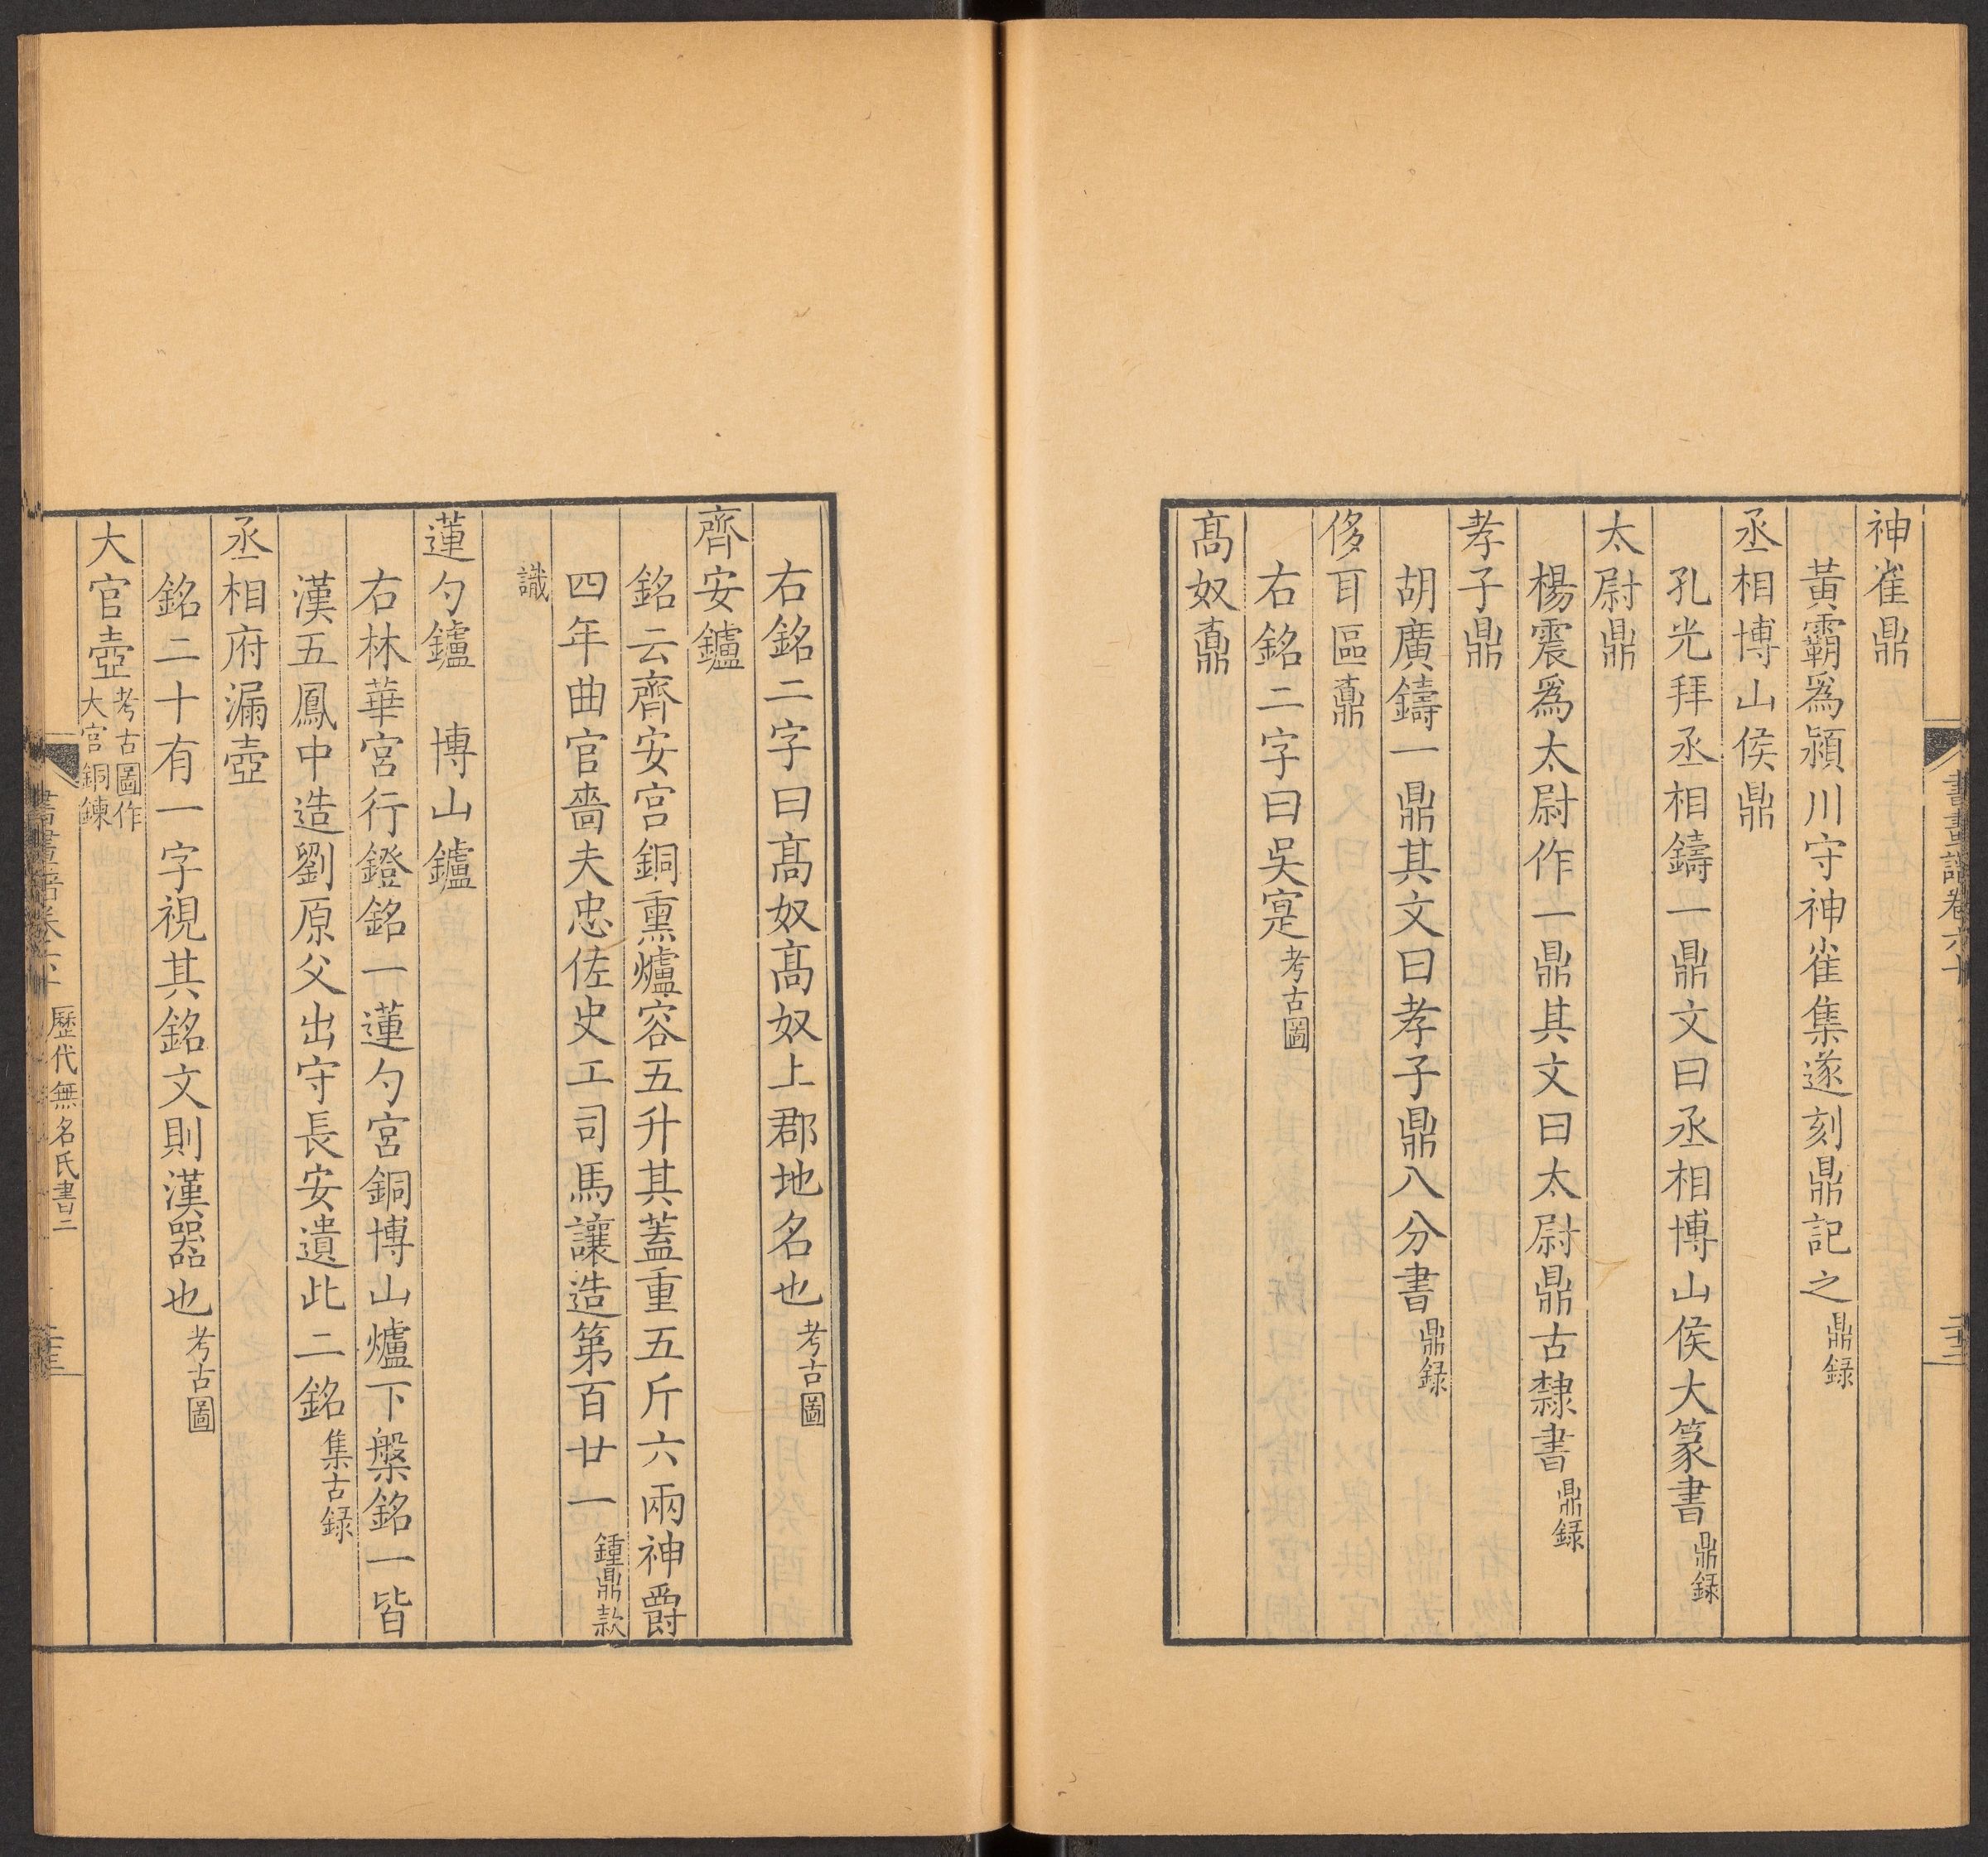 神雀鼎
黃霸爲潁川守神雀集遂刻鼎記之鼎録
丞相博山侯鼎
孔光拜丞相鑄一鼎文曰丞相博山侯大篆書鼎録
太尉鼎
楊震爲太尉作一鼎其文曰太尉鼎古隸書鼎録
孝子鼎
胡廣鑄一鼎其文曰孝子鼎八分書鼎録
侈耳區鼒
右銘二字曰吳寔考古圖
高奴鼒
右銘二字曰高奴高奴上郡地名也考古圖
齊安鑪
銘云齊安宮銅熏爐容五升其蓋重五斤六兩神爵
四年曲官嗇夫忠佐史工司馬讓造第百廿一鍾鼎款
識
蓮勺鑪　博山鑪
右林華宮行鐙銘一蓮勺宮銅博山爐下槃銘一皆
漢五鳳中造劉原父出守長安遺此二銘集古録
丞相府漏壺
銘二十有一字視其銘文則漢器也考古圖
大官壺考古圖作
大官銅鍊
書畫譜卷六十
歷代無名氏書二